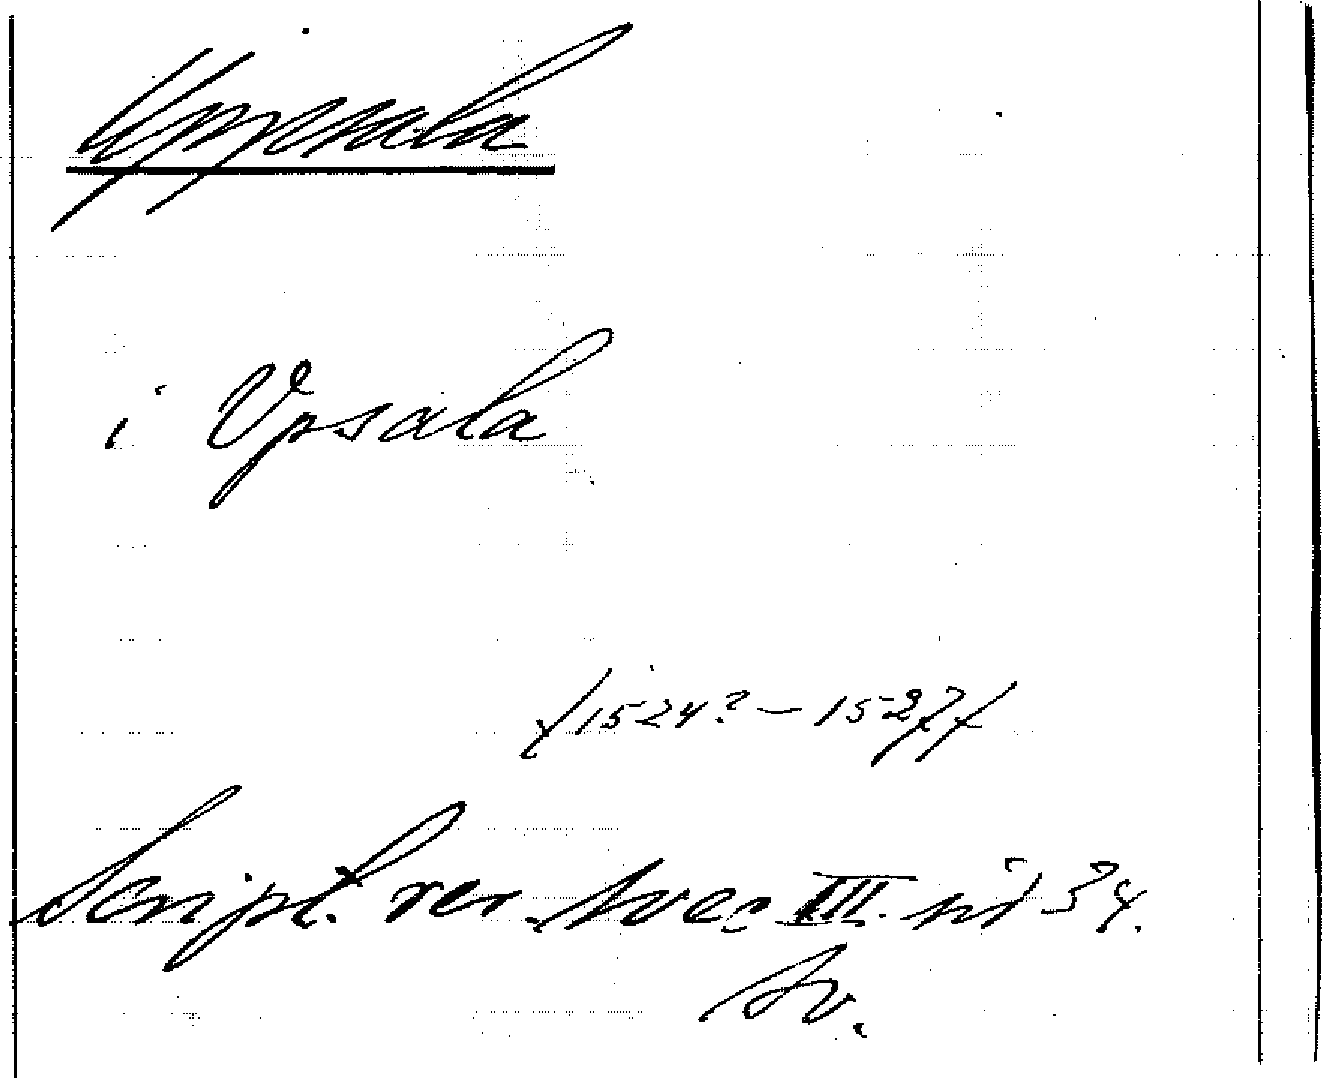 Uppsala
i Vpsala
/1524?-1527/
Script. rer. svec III. nr 34.
Sv.